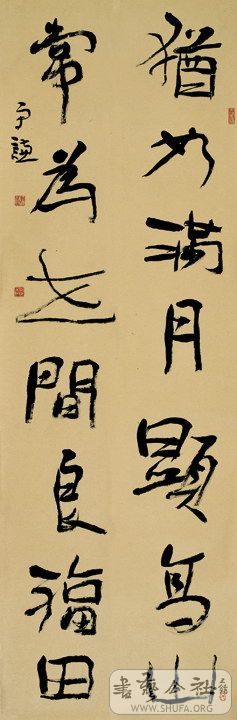 猶如滿月顯高山
常為世間良福田
謙
書藝公社
WWW.SHUFA.ORG